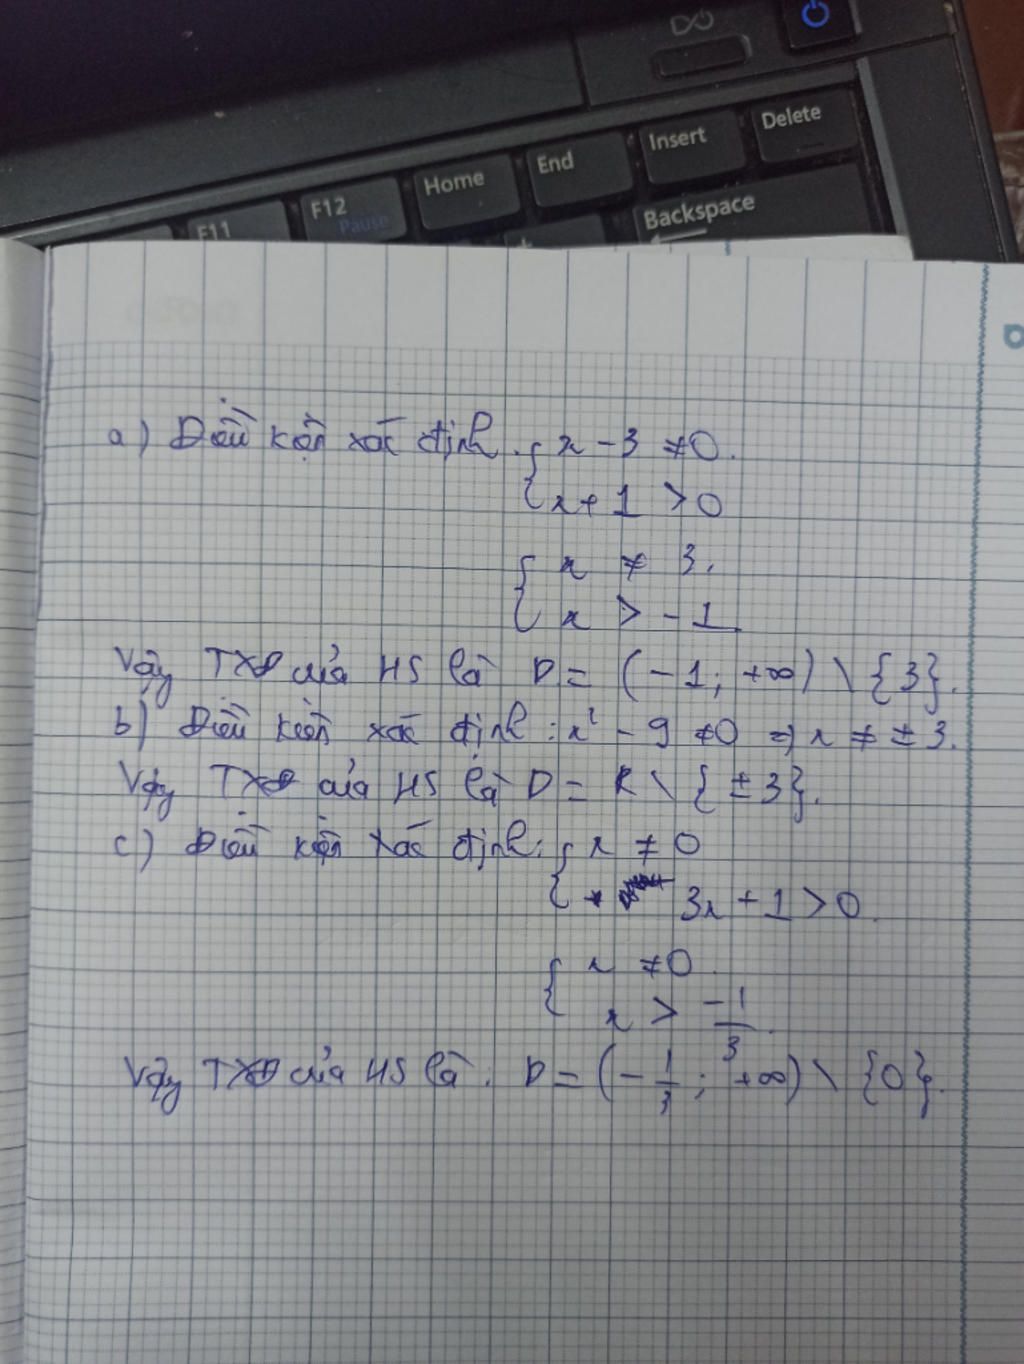 Delete
Insert
End
Home
F12
Pause
F11
Backspace
a) Điều kiện xác định { x - 3 ≠ 0.
x + 1 > 0
{ x ≠ 3.
x > -1
Vậy TXĐ của HS là D = (-1; +∞) \ {3}.
b) Điều kiện xác định: x² - 9 ≠ 0 => x ≠ ±3.
Vậy TXĐ của HS là D = R \ {±3}.
c) Điều kiện xác định: { x ≠ 0
3x + 1 > 0.
{ x ≠ 0
x > -1/3.
Vậy TXĐ của HS là: D = (-1/3; +∞) \ {0}.